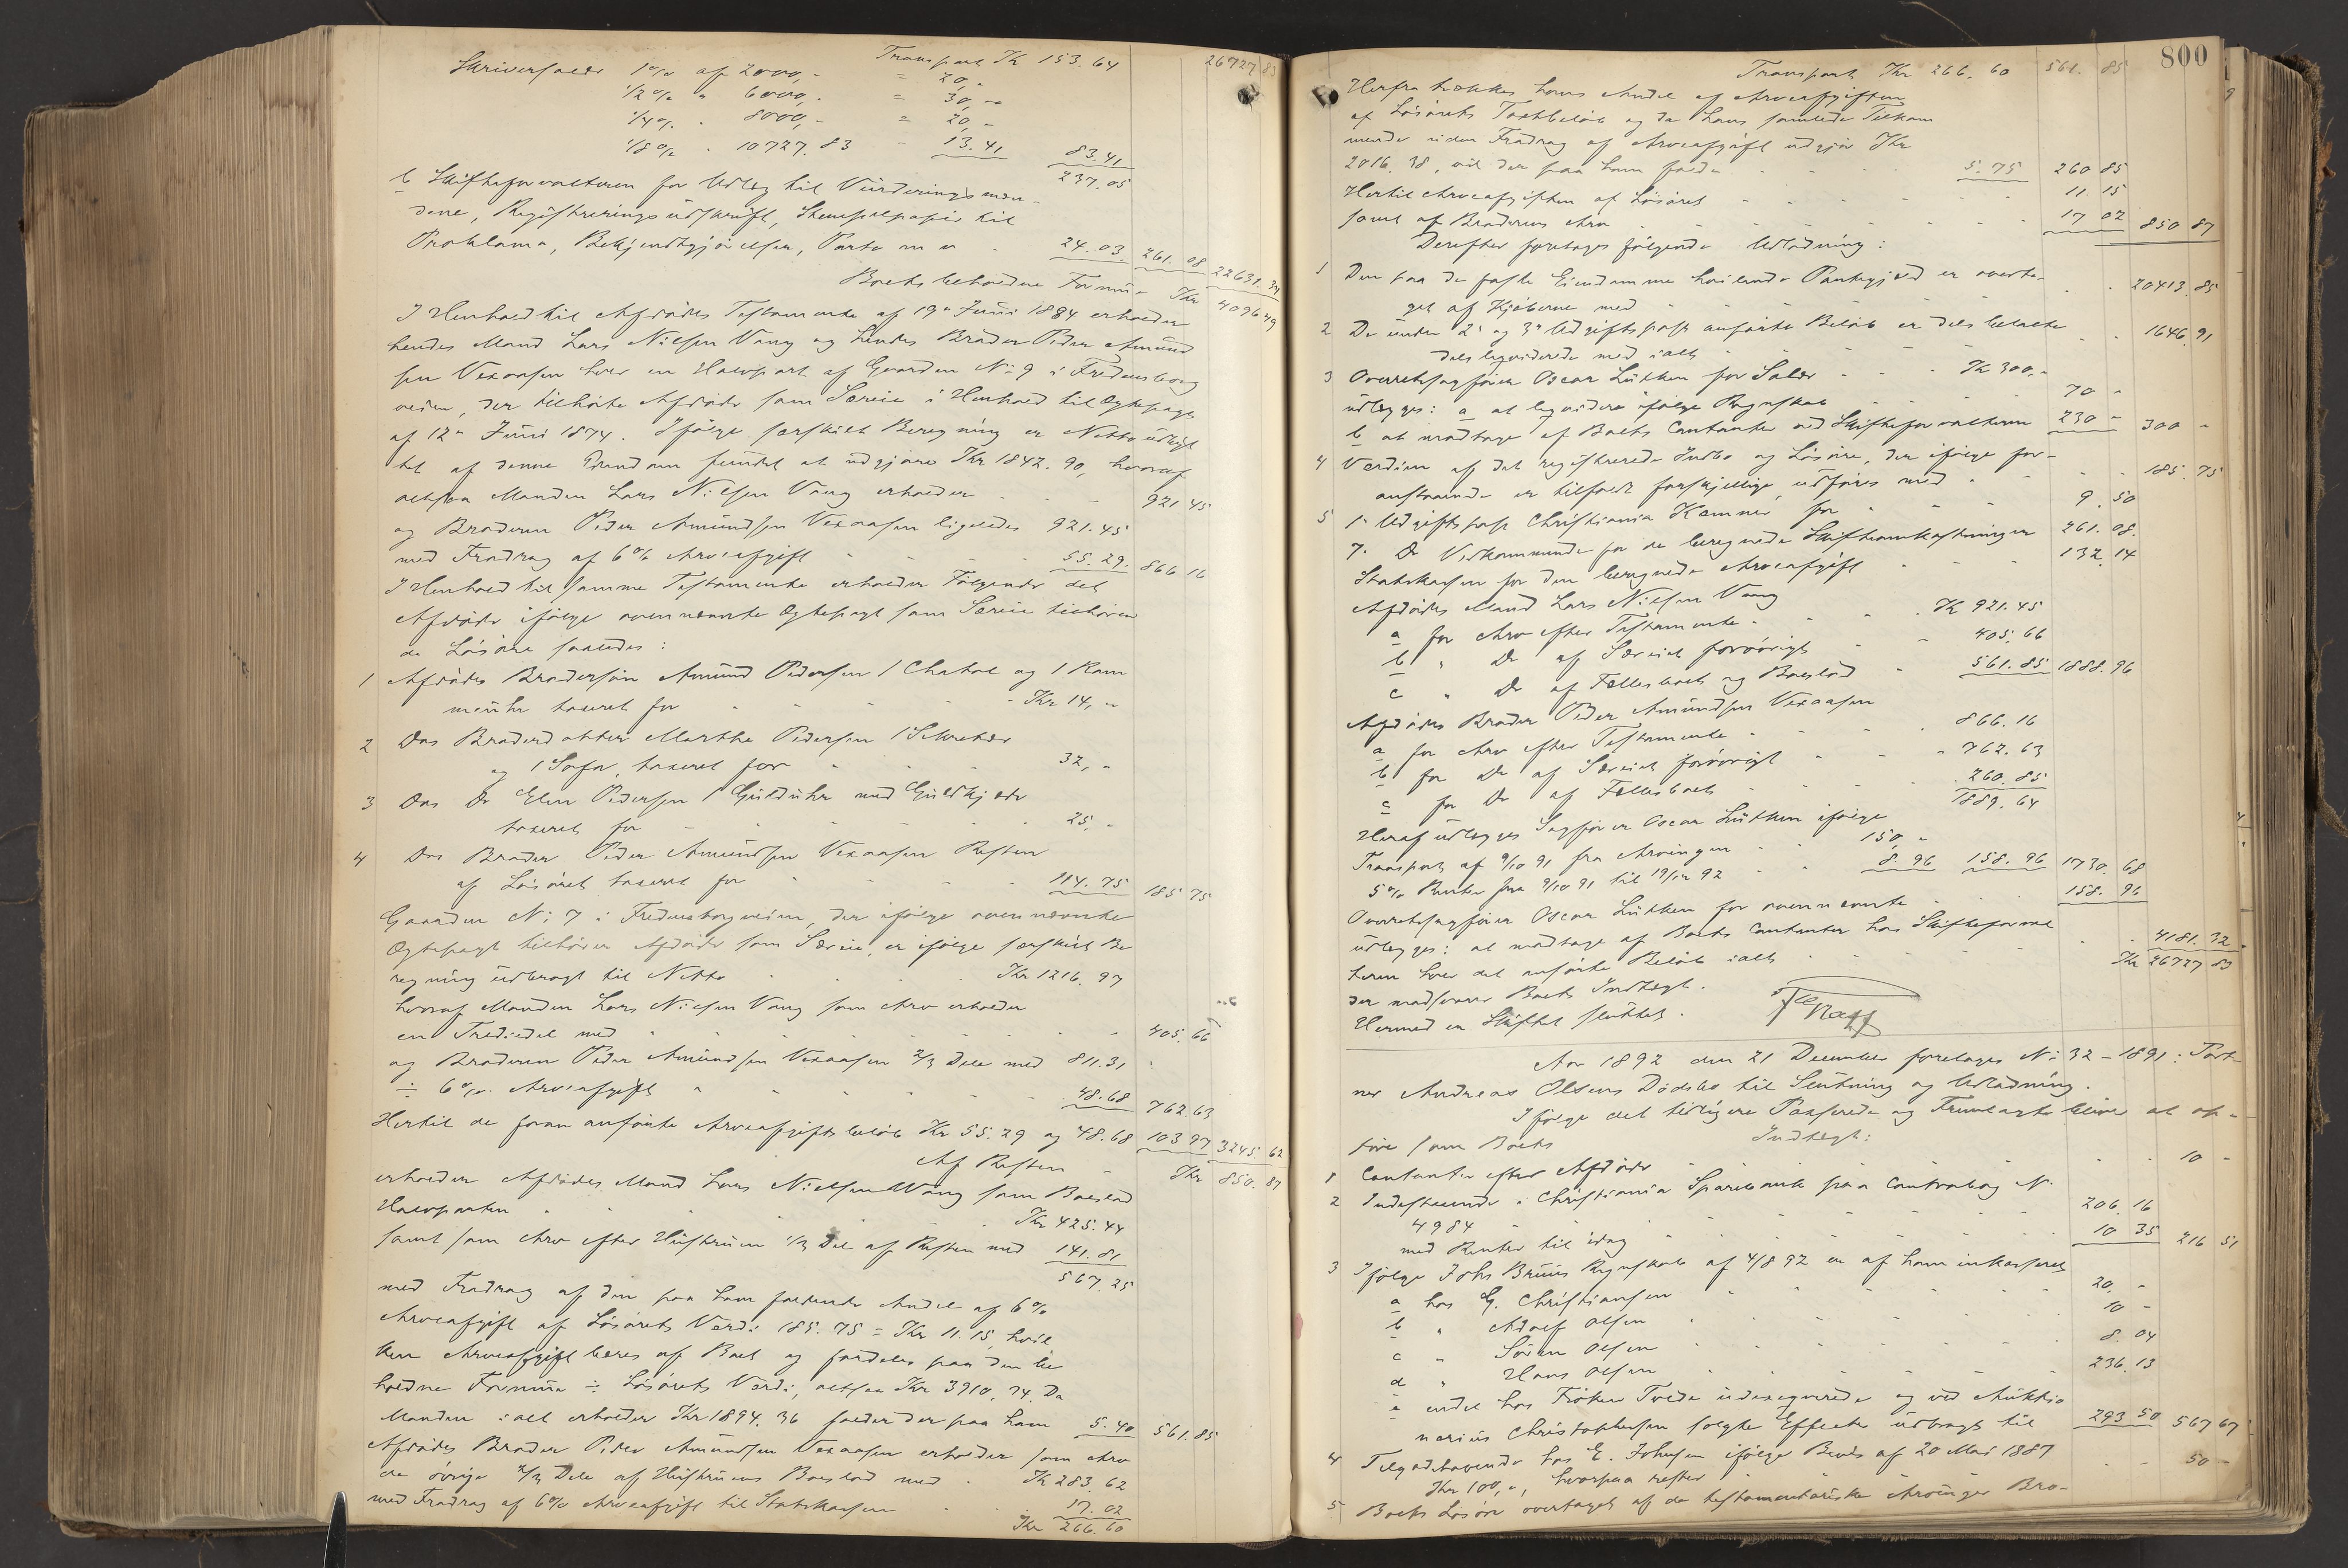 Transport Kr 153.64 26727 83
Skriversalær 1% af 2000,- = 20,-
1/2% " 6000,- = 30,-
1/4% " 8000,- = 20,-
1/8% " 10727.83 - 13.41 83.41
237.05
b Skifteforvalteren for Udlæg til Vurderingsmæn-
dene, Registreringsudskrift, Stempelpapir til
Proklama, Bekjendtgjørelser, Porto m m - 24.03. 261.08 22631.34
Boets beholdne Formue Kr 4096 49
I Henhold til Afdødes Testamente af 19de Juni 1884 erholder
hendes Mand Lars Nilsen Vang og hendes Broder Peder Amund
sen Vexaasen hver en Halvpart af Gaarden No 9 i Fredensborg
veien, der tilhørte Afdøde som Særeie i Henhold til Ægtepagt
af 12te Juni 1874. Ifølge særskilt Beregning er Nettoudbyt
tet af denne Eiendom fundet at udgjøre Kr 1842.90, hvoraf
altsaa Manden Lars Nilsen Vang erholder - - 921 45
og Broderen Peder Amundsen Vexaasen ligeledes 921.45
med Fradrag af 6% Arveafgift - - 55.29. 866 16
I Henhold til samme Testamente erholder Følgende det
Afdøde ifølge ovennævnte Ægtepagt som Særeie tilhøren
de Løsøre saaledes:
1 Afdødes Brodersøn Amund Pedersen 1 Chatol og 1 Kom
mouhr taxeret for - - - Kr 14,-
2 Das Broderdatter Marthe Pedersen 1 Sekretær
og 1 Sofa, taxeret for - - 32,-
3 Das Do Elen Pedersen 1 Gulduhr med Guldkjæde
taxeret for - - - 25,-
4 Das Broder Peder Amundsen Vexaasen Resten
af Løsøret taxeret for - - 114.75 185 75
Gaarden No 7 i Fredensborgveien, der ifølge ovennævnte
Ægtepagt tilhører Afdøde som Særeie, er ifølge særskilt Be
regning udbragt til Netto - - Kr 1216.97
hvoraf Manden Lars Nilsen Vang som Arv erholder
en Trediedel med - - - 405.66
og Broderen Peder Amundsen Vexaasen 2/3 Dele med 811.31
÷ 6% Arveafgift - - - 48.68 762.63
Hertil de foran anførte Arveafgiftsbeløb Kr 55.29 og 48.68 103 97 3245 62
Af Resten - Kr 850.87
erholder Afdødes Mand Lars Nielsen Vang som Boeslod
Halvparten - - - Kr 425.44
samt som Arv efter Hustruen 1/3 Del af Resten med 141.81
567.25
med Fradrag af den paa ham faldende Andel af 6%
Arveafgift af Løsørets Værdi 185.75 = Kr 11.15, hvil
ken Arveafgift bæres af Boet og fordeles paa den be
holdne Formue ÷ Løsørets Værdi, altsaa Kr 3910,74. Da
Manden ialt erholder Kr 1894.36 falder der paa ham 5.40 561.85
Afdødes Broder Peder Amundsen Vexaasen erholder som Arv
de øvrige 2/3 Dele af Hustruens Boeslod med - Kr 283.62
med Fradrag af 6% Arveafgift til Statskassen - 17.02
Kr 266.60
800
Transport Kr 266.60 561.85
Herfra trækkes hans Andel af Arveafgiften
af Løsørets Taxtbeløb og da hans samlede Tilkom
mende uden Fradrag af Arveafgift udgjør Kr
2016.38, vil der paa ham falde - - 5.75 260 85
Hertil Arveafgiften af Løsøret - - - 11.15
samt af Broderens Arv - - - 17 02 850 87
Derefter foretages følgende Udlodning:
1 Den paa de faste Eiendomme heftende Pantegjæld er overta-
get af Kjøberne med - - 20413.85
2 De under 2de og 3de Udgiftspost anførte Beløb er dels betalte
dels liqviderede med ialt - - 1646.91
3 Overretssagfører Oscar Lütken for Salær - - Kr 300,-
udlægges: a at liqvidere ifølge Regnskab - 70 -
b at modtage af Boets Contanter ved Skifteforvalteren 230 - 300 -
4 Værdien af det registrerede Indbo og Løsøre, der ifølge for-
anstaaende er tilfaldt forskjellige, udføres med - 185.75
5 1. Udgiftspost Christiania Kæmner for - - 9.50
7. Do Vedkommende for de beregnede Skifteomkostninger 261.08.
Statskassen for den beregnede Arveafgift - 132.14
Afdødes Mand Lars Nilsen Vang
a for Arv efter Testamente - - Kr 921.45
b " Do af Særeiet forøvrigt - 405.66
c " Do af Fællesboet og Boeslod - 561.85 1888.96
Afdødes Broder Peder Amundsen Vexaasen
a for Arv efter Testamente - - 866.16
b for Do af Særeiet forøvrigt - - 762.63
c for Do af Fællesboet - - 260.85
1889.64
Heraf udlægges Sagfører Oscar Lütken ifølge
Transport af 9/10 91 fra Arvingen - 150,-
5% Renter fra 9/10 91 til 19/12 92 - 8.96 158.96 1730.68
Overretssagfører Oscar Lütken for ovennævnte - 158.96
udlægges: at modtage af Boets Contanter hos Skifteforval
teren hver det anførte Beløb ialt - - 4181.32
der modsvarer Boets Indtægt. Kr 26727 83
Hermed er Skiftet sluttet.
Aar 1892 den 21 December foretages No 32 - 1891: Port-
ner Andreas Olsens Dødsbo til Slutning og Udlodning.
Ifølge det tidligere Passerede og Fremlagte bliver at op-
føre som Boets Indtægt:
1 Contanter efter Afdøde - - 10 -
2 Indestaaende i Christiania Sparebank paa Contrabog No
4984 - - - 206.16
med Renter til idag - - 10 35 216 51
3 Ifølge Johs Bruuns Regnskab af 4/8 92 er af ham inkasseret
a hos G. Christiansen - - 20,-
b " Adolf Olsen - - 10 -
c " Søren Olsen - - 8.04
d " Hans Olsen - - 236.13
e endel hos Frøken Tvede udexeqverede og ved Auktio
narius Christophersen solgte Effecter udbragt til 293 50 567 67
4 Tilgodehavende hos E. Johnsen ifølge Bevis af 20 Mai 1887
Kr 100,-, hvorpaa rester - - 50 -
5 Boets Løsøre overtaget af de testamentariske Arvinger Bro-